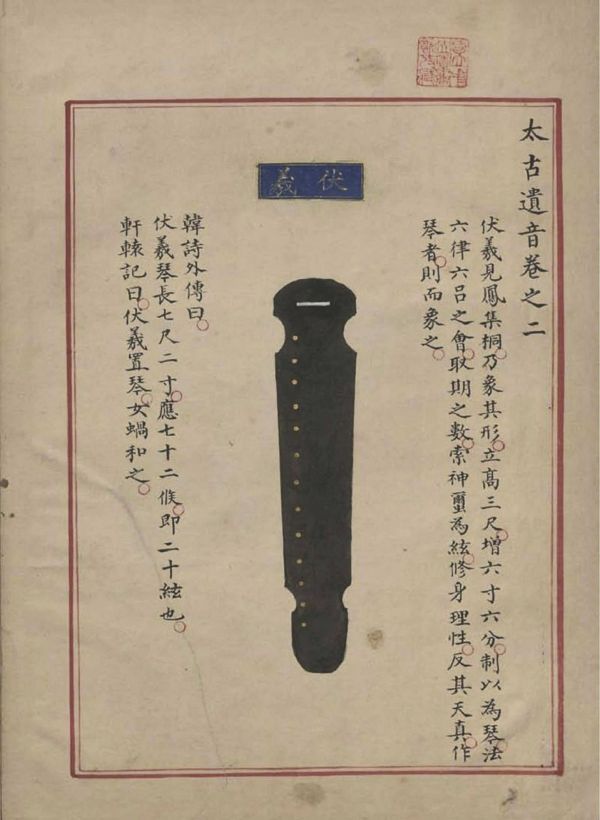 太古遺音卷之二
伏羲見鳳集桐乃象其形立高三尺增六寸六分制以為琴法
六律六呂之會取期之數索神蠒為絃修身理性反其天真作
琴者則而象之
伏羲
韓詩外傳曰
伏羲琴長七尺二寸應七十二候即二十絃也
軒轅記曰伏羲置琴女媧和之